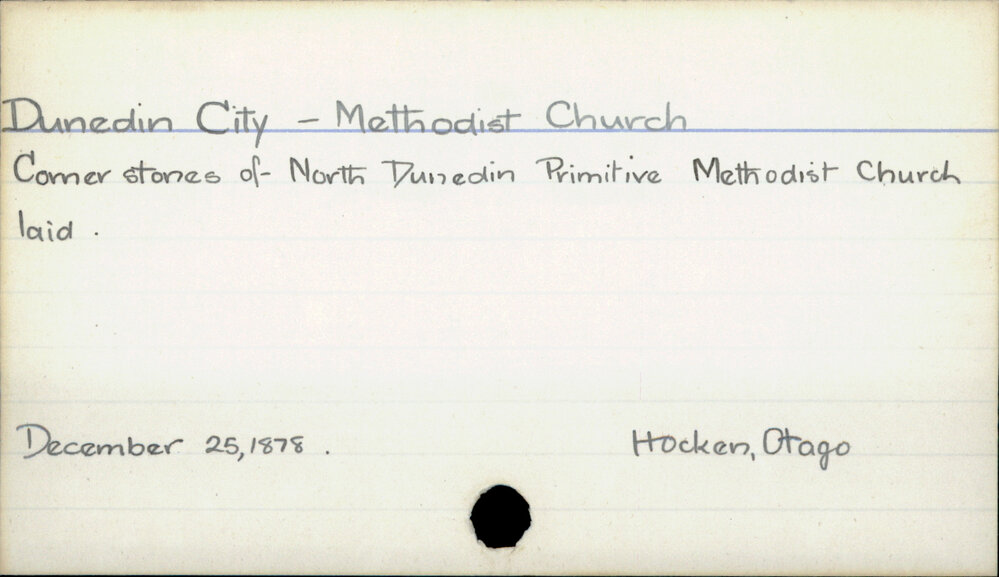 Dunedin City – Methodist Church
Corner stones of North Dunedin Primitive Methodist Church
laid.
December 25, 1878.
Hocken, Otago